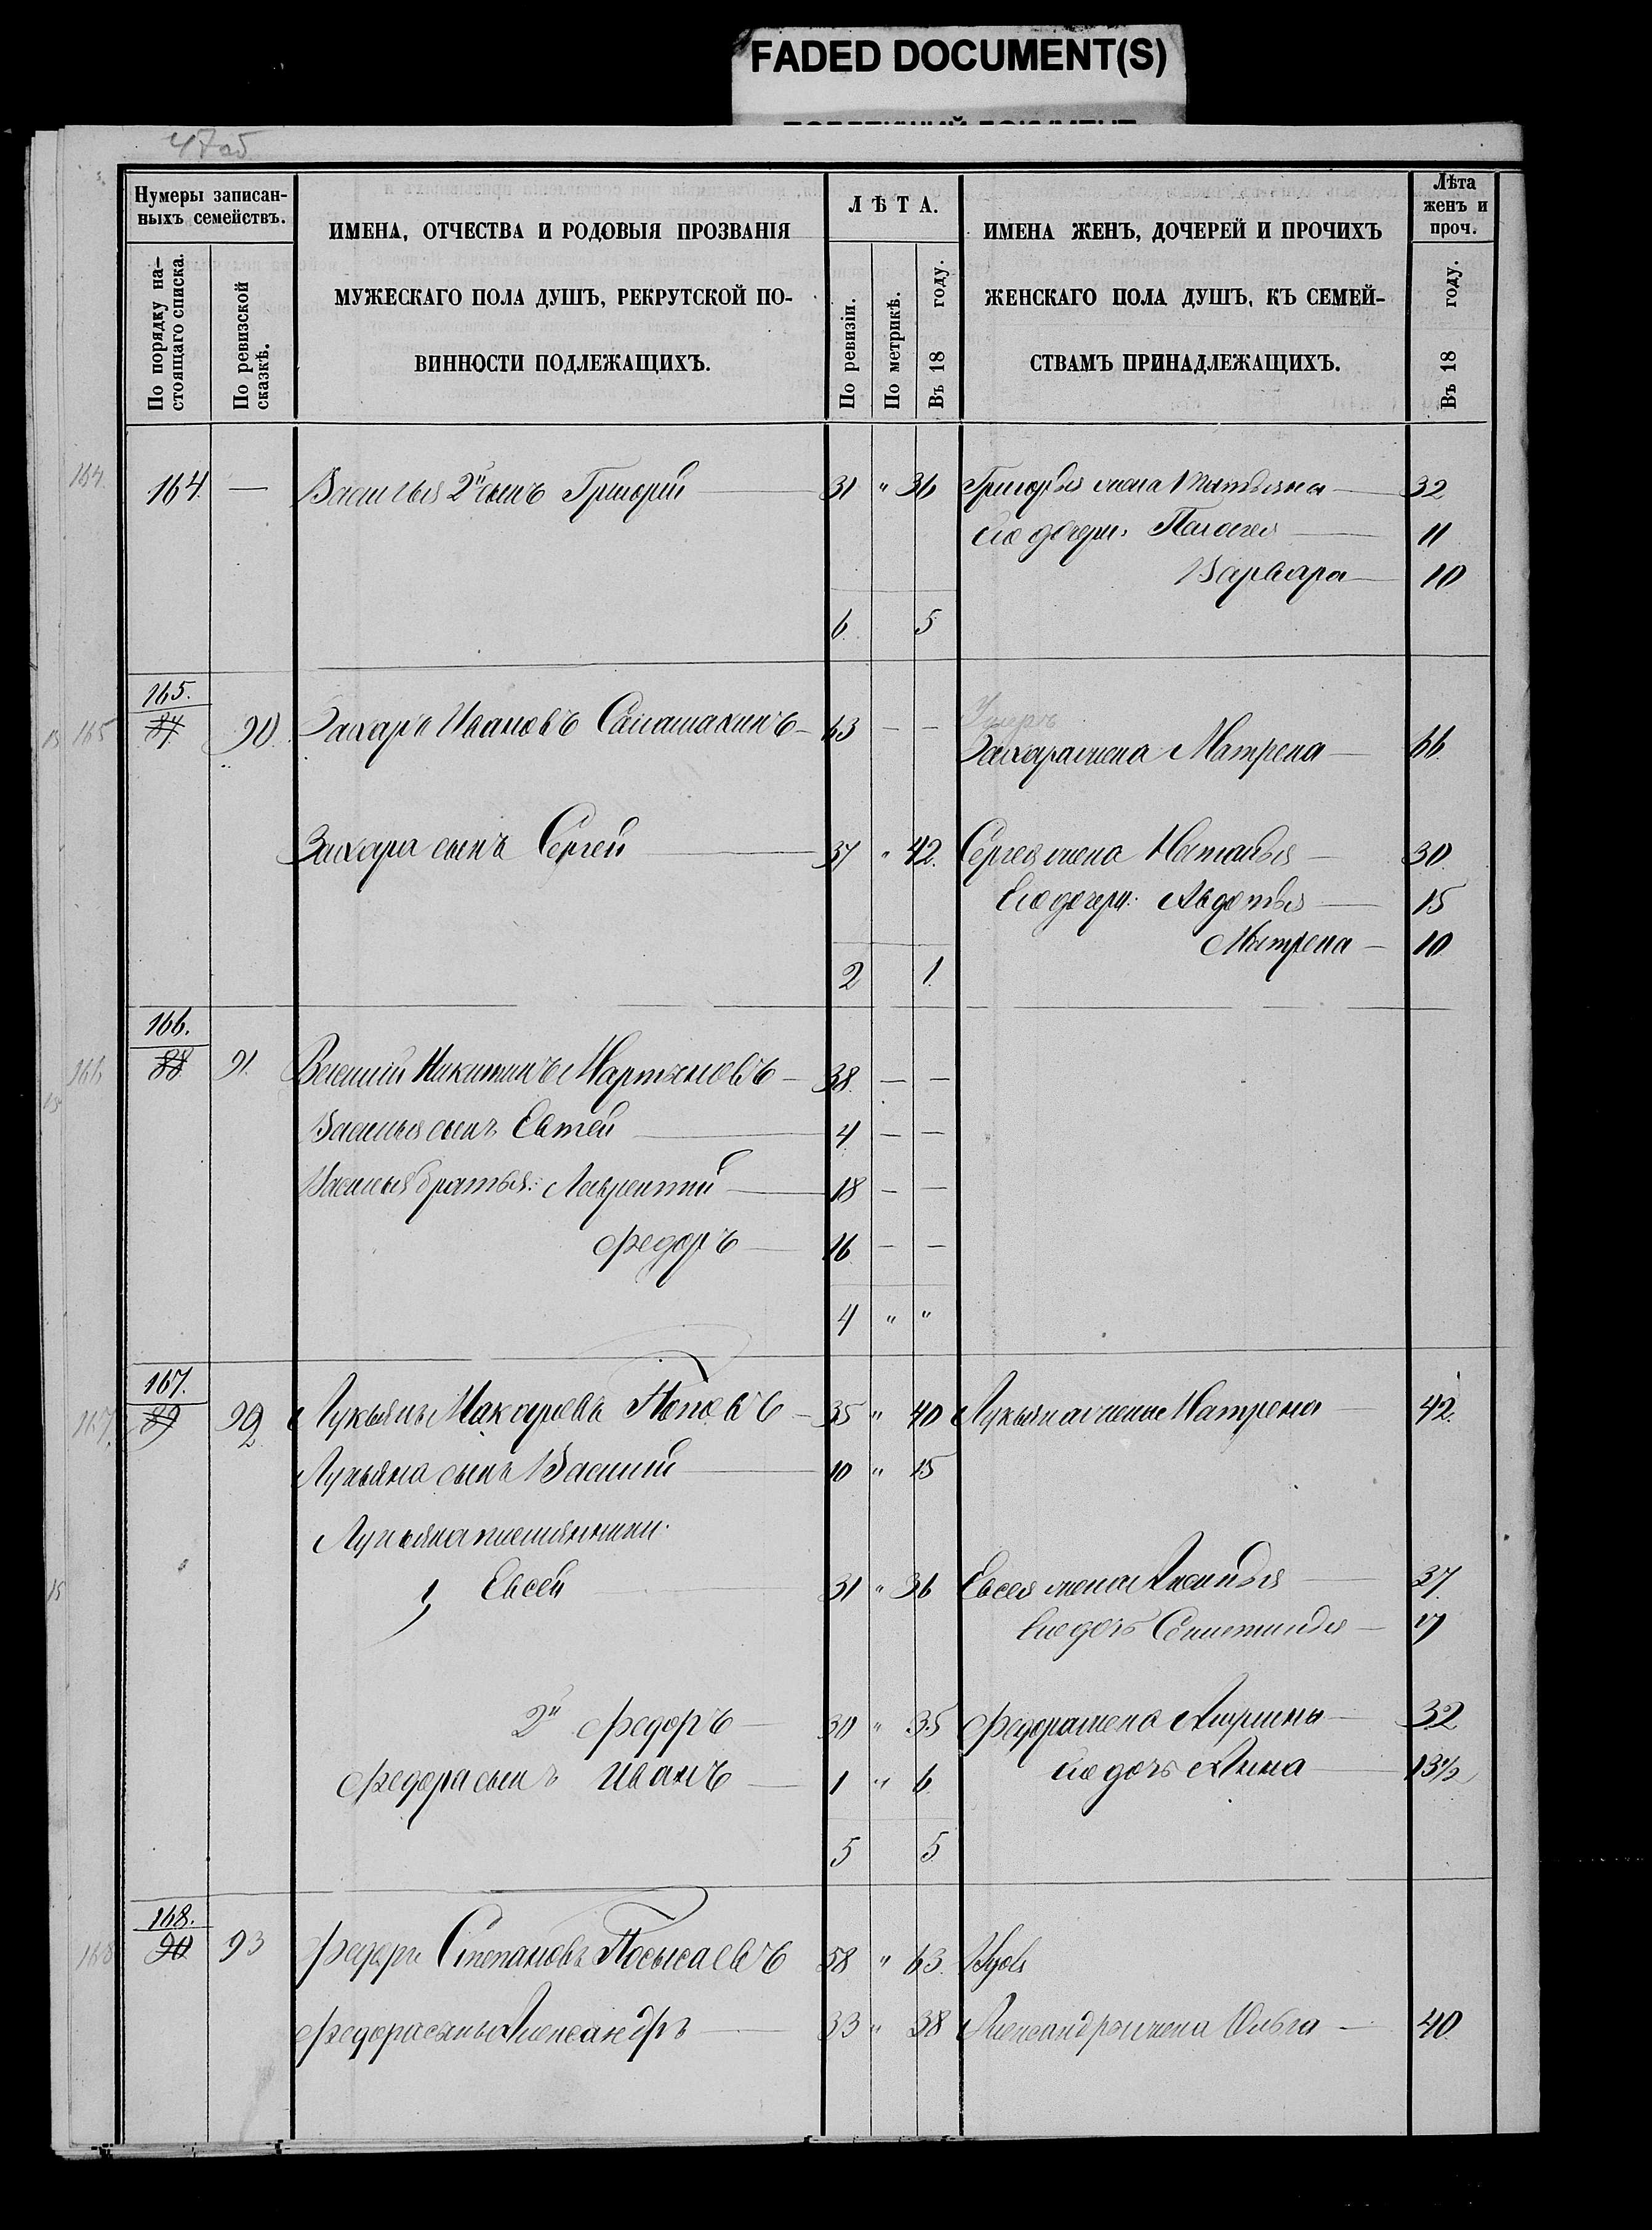 FADED DOCUMENT(S)
47 об
Нумеры записан-
ныхъ семействъ.
По порядку на-
стоящаго списка.
По ревизской
сказкѣ.
ИМЕНА, ОТЧЕСТВА И РОДОВЫЯ ПРОЗВАНІЯ
МУЖЕСКАГО ПОЛА ДУШЪ, РЕКРУТСКОЙ ПО-
ВИННОСТИ ПОДЛЕЖАЩИХЪ.
ЛѢТА.
По ревизіи.
По метрикѣ.
Въ 18 году.
ИМЕНА ЖЕНЪ, ДОЧЕРЕЙ И ПРОЧИХЪ
ЖЕНСКАГО ПОЛА ДУШЪ, КЪ СЕМЕЙ-
СТВАМЪ ПРИНАДЛЕЖАЩИХЪ.
Лѣта
женъ и
проч.
Въ 18 году.
164 164. — Василья 2й сынъ Григорій — 31 " 36 Григорья жена Татьяна — 32
Его дочери: Палагея — 11
Варвара — 10
6 5
165.
15 165 87 90. Захаръ Ивановъ — 63 — — Умеръ
Захара жена Матрена — 66
Захара сынъ Сергей — 37 " 42. Сергея жена Наталья — 30
Его дочери: Авдотья — 15
Матрена — 10
2 1.
166.
166 88 91. Василій Никитинъ Мартыновъ — 38. — —
15
Василья сынъ Евтей — 4 — —
Василья братья: Лаврентій — 18 — —
Федоръ — 16 — —
4 " "
167.
167. 89 92 Лукьянъ Макаровъ Поповъ — 35 " 40 Лукьяна жена Матрена — 42.
Лукьяна сынъ Василій — 10 " 15
Лукьяна племянники:
15 1, Евсей — 31 " 36 Евсея жена — 37
Его дочь
2й Федоръ — 30 " 35 Федора жена — 32
Федора сынъ Иванъ — 1 " 6 Его дочь Анна — 13½
5 5
168.
168 90 93 Федоръ Степановъ 58 " 63. Вдовъ
Федора сынъ Александръ — 33 " 38 Александра жена Ольга — 40